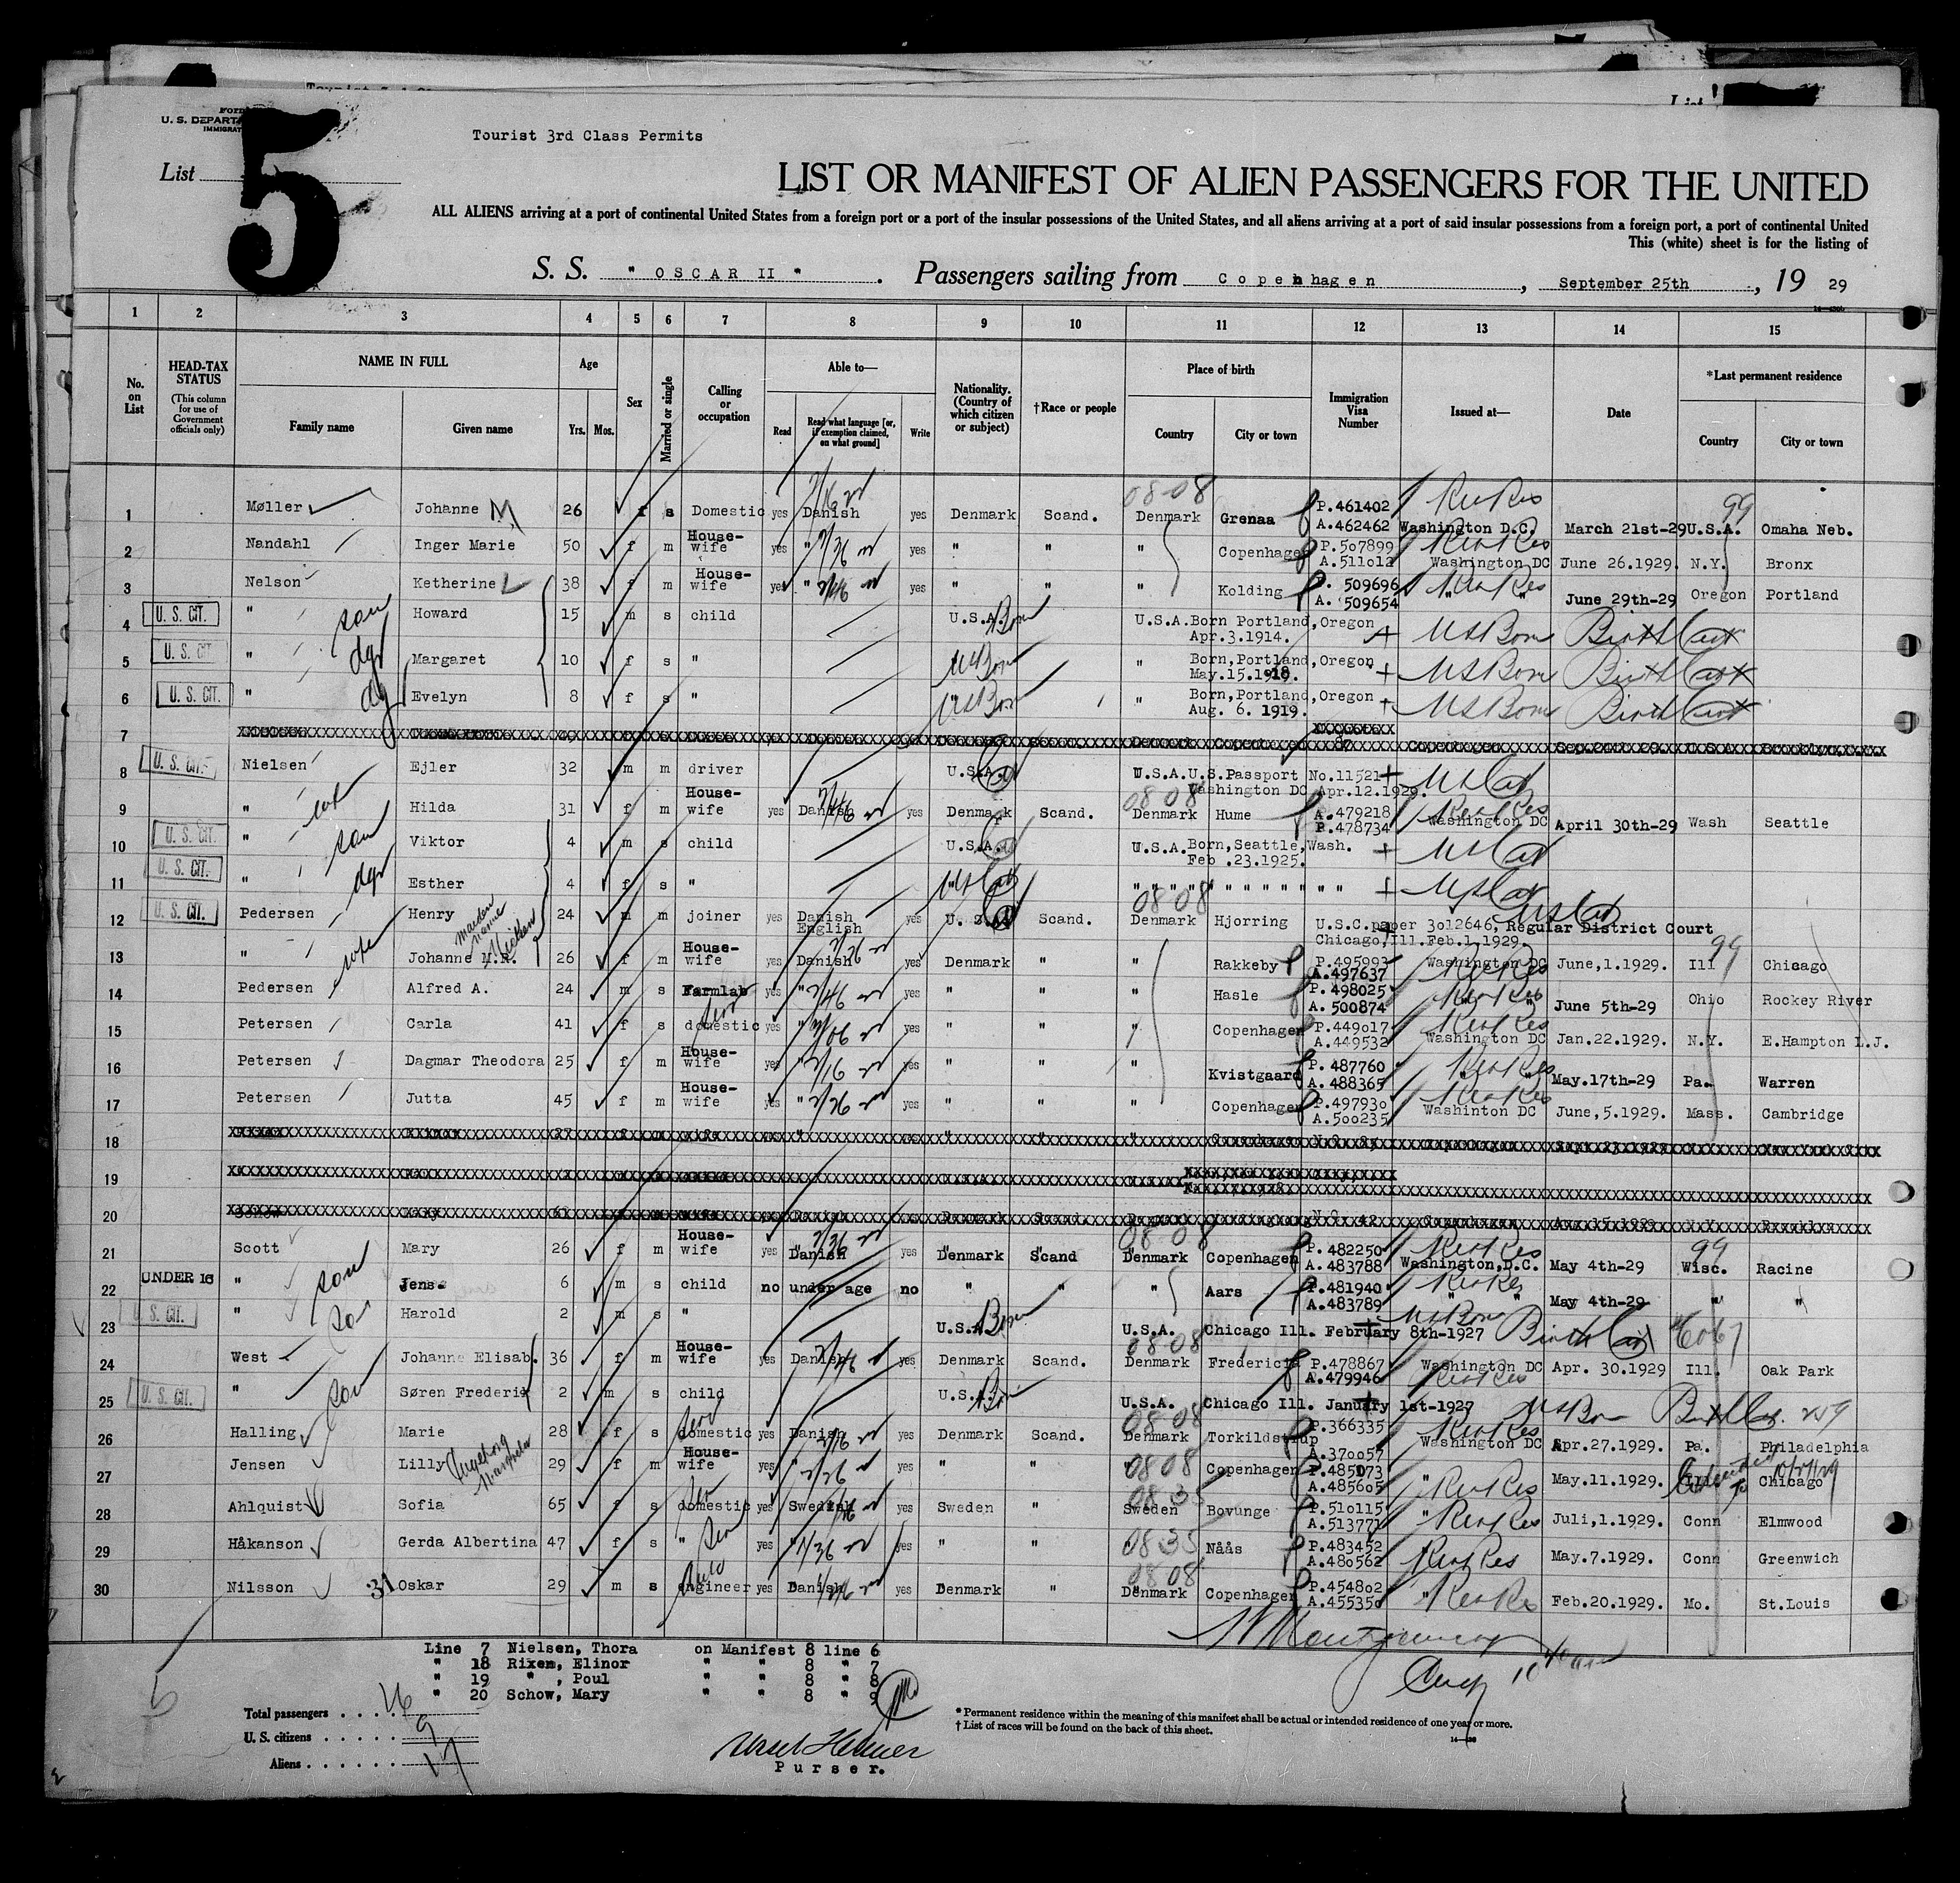 FORM
U. S. DEPART
IMMIGRAT
Tourist 3rd Class Permits
List
5
LIST OR MANIFEST OF ALIEN PASSENGERS FOR THE UNITED
ALL ALIENS arriving at a port of continental United States from a foreign port or a port of the insular possessions of the United States, and all aliens arriving at a port of said insular possessions from a foreign port, a port of continental United
This (white) sheet is for the listing of
S. S. " OSCAR II " . Passengers sailing from Copenhagen , September 25th , 19 29
1 2 3 4 5 6 7 8 9 10 11 12 13 14 15
No. on List
HEAD-TAX STATUS (This column for use of Government officials only)
NAME IN FULL Family name Given name
Age Yrs. Mos.
Sex
Married or single
Calling or occupation
Able to— Read Read what language [or, if exemption claimed, on what ground] Write
Nationality. (Country of which citizen or subject)
†Race or people
Place of birth Country City or town
Immigration Visa Number
Issued at—
Date
*Last permanent residence Country City or town
1 Møller Johanne M 26 f s Domestic yes Danish yes Denmark Scand. Denmark Grenaa P.461402 A.462462 Washington D.C. March 21st-29 U.S.A. Omaha Neb.
2 Nandahl Inger Marie 50 f m House-wife yes " yes " " " Copenhagen P.507899 A.511012 Washington DC June 26.1929. N.Y. Bronx
3 Nelson Ketherine 38 f m House-wife yes " yes " " " Kolding P. 509696 A. 509654 " " June 29th-29 Oregon Portland
4 U. S. CIT. " son Howard 15 m s child U.S.A. Born U.S.A. Born Portland,Oregon Apr.3.1914. US Born Birth Cert
5 U. S. CIT. " dgr Margaret 10 f s " US Born " Born,Portland,Oregon May.15.1918. US Born Birth Cert
6 U. S. CIT. " dg Evelyn 8 f s " US Born " Born,Portland,Oregon Aug. 6. 1919. US Born Birth Cert
7
8 U. S. CIT. Nielsen Ejler 32 m m driver U.S.A. U.S.A. U.S.Passport No.11521 Washington DC Apr.12.1929.
9 " wife Hilda 31 f m House-wife yes Danish yes Denmark Scand. Denmark Hume A.479218 P.478734 Washington DC April 30th-29 Wash Seattle
10 U. S. CIT. " son Viktor 4 m s child U.S.A. U.S.A. Born,Seattle,Wash. Feb .23.1925.
11 U. S. CIT. " dgr Esther 4 f s " " " " " " " " " " " " "
12 U. S. CIT. Pedersen Henry 24 m m joiner yes Danish English yes U. S. A. Scand. Denmark Hjorring U.S.C.paper 3012646, Regular District Court Chicago,Ill.Feb.1.1929.
13 " wife Johanne maiden name 26 f m House-wife yes Danish yes Denmark " " Rakkeby P.495093 A.497637 Washington DC June,1.1929. Ill Chicago
14 Pedersen Alfred A. 24 m s Farmlab yes " yes " " " Hasle P.498025 A. 500874 " " June 5th-29 Ohio Rockey River
15 Petersen Carla 41 f s domestic yes " yes " " " Copenhagen P.449017 A.449532 Washington DC Jan.22.1929. N.Y. E.Hampton L.J.
16 Petersen Dagmar Theodora 25 f m House-wife yes " yes " " " Kvistgaard P. 487760 A. 488365 " " May.17th-29 Pa. Warren
17 Petersen Jutta 45 f m House-wife yes " yes " " " Copenhagen P.497930 A.500235 Washinton DC June,5.1929. Mass. Cambridge
18
19
20
21 Scott Mary 26 f m House-wife yes Danish yes Denmark Scand Denmark Copenhagen P.482250 A.483788 Washington,D.C. May 4th-29 Wisc. Racine
22 UNDER 16 " son Jens 6 m s child no under age no " " " Aars P.481940 A.483789 " " May 4th-29 " "
23 U. S. CIT. " son Harold 2 m s " U.S.A. Born U.S.A. Chicago Ill. February 8th-1927 US Born Birth Cert 6067
24 West Johanne Elisab. 36 f m House-wife yes Danish yes Denmark Scand. Denmark Fredericia P.478867 A.479946 Washington DC Apr. 30.1929 Ill. Oak Park
25 U. S. CIT. " son Søren Frederik 2 m s child U.S.A. Born U.S.A. Chicago Ill. January 1st-1927 US Born Birth Cer.
26 Halling Marie 28 f s domestic yes Danish yes Denmark Scand. Denmark Torkildstrup P.366335 A.370057 Washington DC Apr.27.1929. Pa. Philadelphia
27 Jensen Lilly Ingeborg 29 f m House-wife yes " yes " " " Copenhagen P.485073 A.485605 " May.11.1929. Ill. Chicago
28 Ahlquist Sofia 65 f s domestic yes Swedish yes Sweden " Sweden Bovunge P.510115 A.513771 " Juli,1.1929. Conn Elmwood
29 Håkanson Gerda Albertina 47 f s " yes " yes " " " Nåås P.483452 A.480562 May.7.1929. Conn Greenwich
30 Nilsson 31 Oskar 29 m s engineer yes Danish yes Denmark " Denmark Copenhagen P.454802 A.455350 " Feb.20.1929. Mo. St.Louis
Line 7 Nielsen, Thora on Manifest 8 line 6
" 18 Rixen, Elinor " " 8 " 7
" 19 " , Poul " " 8 " 8
" 20 Schow, Mary " " 8 " 9
Total passengers . . . . 26
U. S. citizens . . . . . 9
Aliens . . . . . . 17
Purser.
* Permanent residence within the meaning of this manifest shall be actual or intended residence of one year or more.
† List of races will be found on the back of this sheet.